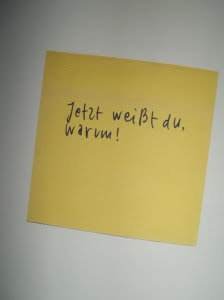 Jetzt weißt du,
warum!